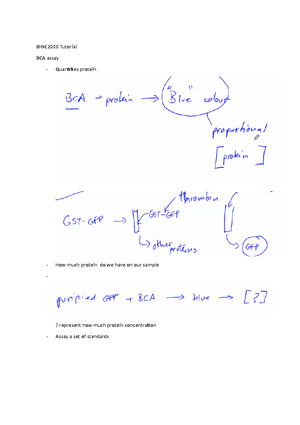 BIOC2000 Tutorial
BCA assay
- Quantifies protein
BCA + protein → "Blue" colour
proportional
[protein]
thrombin
GST-GFP → GST-GFP
other proteins
GFP
- How much protein do we have on our sample
-
purified GFP + BCA → blue → [?]
? represent how much protein concentration
- Assay a set of standards